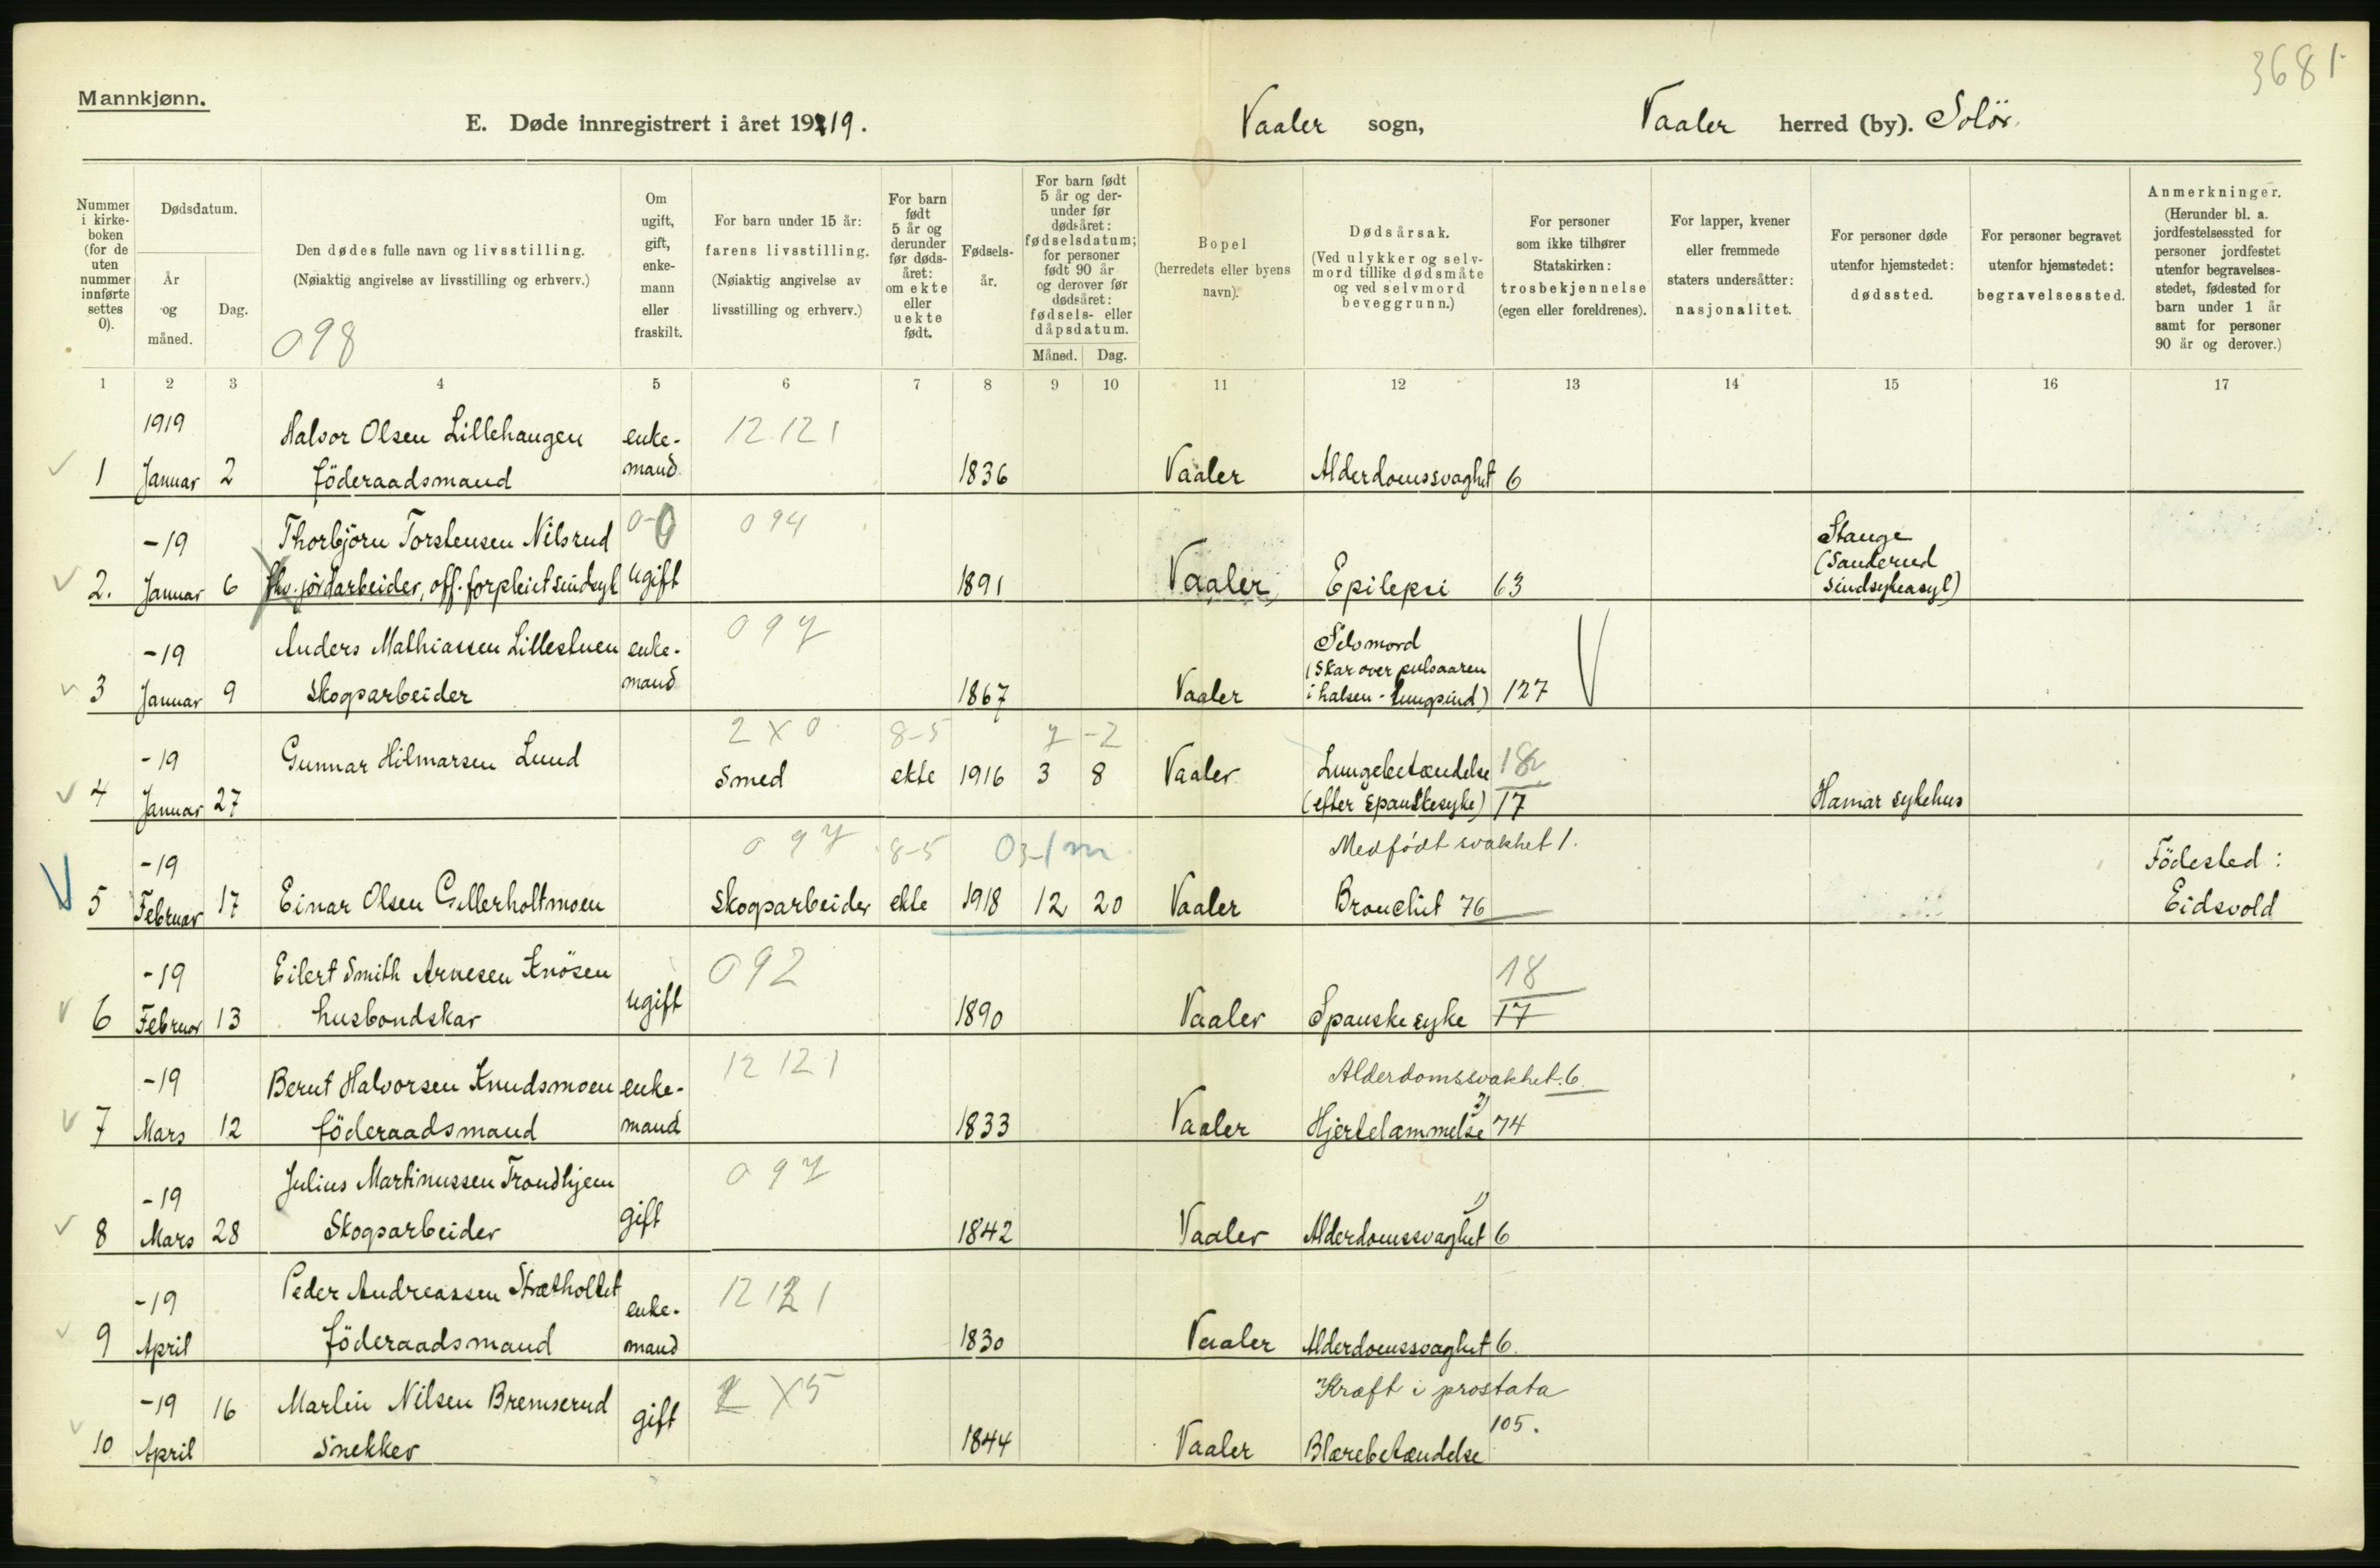 3681
Mannkjønn.
E. Døde innregistrert i året 1919.
Vaaler sogn,
Vaaler herred (by). Solör.
Nummer i kirke- boken (for de uten nummer innførte settes 0).
Dødsdatum.
År og måned.
Dag.
Den dødes fulle navn og livsstilling.
(Nøiaktig angivelse av livsstilling og erhverv.)
098
Om ugift, gift, enke- mann eller fraskilt.
For barn under 15 år:
farens livsstilling.
(Nøiaktig angivelse av livsstilling og erhverv.)
For barn født 5 år og derunder før døds- året: om ekte eller uekte født.
Fødsels- år.
For barn født 5 år og der- under før dødsåret: fødselsdatum; for personer født 90 år og derover før dødsåret: fødsels- eller dåpsdatum.
Måned. Dag.
Bopel
(herredets eller byens navn).
Dødsårsak.
(Ved ulykker og selv- mord tillike dødsmåte og ved selvmord beveggrunn.)
For personer som ikke tilhører Statskirken: trosbekjennelse (egen eller foreldrenes).
For lapper, kvener eller fremmede staters undersåtter: nasjonalitet.
For personer døde utenfor hjemstedet: dødssted.
For personer begravet utenfor hjemstedet: begravelsessted.
Anmerkninger.
(Herunder bl. a. jordfestelsessted for personer jordfestet utenfor begravelses- stedet, fødested for barn under 1 år samt for personer 90 år og derover.)
1 2 3 4 5 6 7 8 9 10 11 12 13 14 15 16 17
1919 Halvor Olsen Lillehaugen enke- 12 121
1 Januar 2 föderaadsmand mand 1836 Vaaler Alderdomssvaghet 6
-19 Thorbjörn Torstensen Nilsrud 0-0 094 Stange
(Sanderud
2. Januar 6 jordarbeider, off. forpleiet sindsyk ugift 1891 Vaaler Epilepsi 63 Sindsykeasyl)
-19 Anders Mathiassen Lillestuen enke- 097 Selvmord
(Skar over pulsaaren
3 Januar 9 Skogsarbeider mand 1867 Vaaler i halsen - tungsind) 127
2 X 0 8-5 7 -2
-19 Gunnar Hilmarsen Lund Smed ekte 1916 3 8 Vaaler Lungebetændelse 18
4 Januar 27 (efter Spanskesyke) 17 Hamar sykehus
-19 097 8-5 03-1m Medfödt svakhet 1. Födested:
5 Februar 17 Einar Olsen Gillerholtmoen Skogsarbeider ekte 1918 12 20 Vaaler Bronchit 76 Eidsvold
-19 Eilert Smith Arnesen Knösen 092 18
6 Februar 13 husbondskar ugift 1890 Vaaler Spanskesyke 17
-19 Bernt Halvorsen Knudsmoen enke- 12 121 Alderdomssvakhet. 6.
7 Mars 12 föderaadsmand mand 1833 Vaaler Hjertelammelse 2) 74
-19 Julius Martinussen Trondhjem 097
8 Mars 28 Skogsarbeider gift 1842 Vaaler Alderdomssvaghet 1) 6
-19 Peder Andreassen Strætholtet enke- 12 121
9 April föderaadsmand mand 1830 Vaaler Alderdomssvaghet 6.
-19 16 Martin Nilsen Bremserud gift X5 Kræft i prostata
105.
10 April Snekker 1844 Vaaler Blærebetændelse